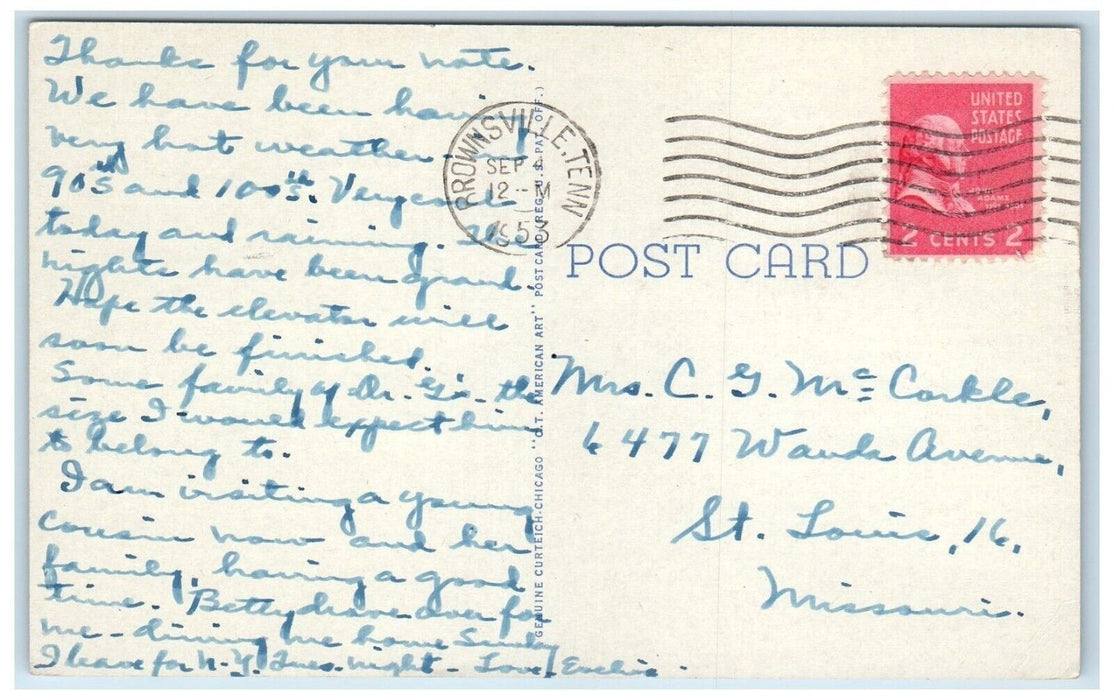 Thanks for your note.
We have been having
very hot weather - of
90's and 100's. Very cool
today and raining. The
nights have been grand.
Hope the elevator will
soon be finished.
Some family of Dr. G's - the
size I would expect him
to belong to.
I am visiting a young
cousin now and her
family, having a good
time. Betty drove over for
me - driving me home Sunday
I leave for N.Y. Tues. night - Love,
GENUINE CURTEICH-CHICAGO "C.T. AMERICAN ART" POST CARD (REG. U.S. PAT. OFF.)
BROWNSVILLE, TENN
SEP
12 - M
195
UNITED
STATES
POSTAGE
ADAMS
2 CENTS 2
POST CARD
Mrs. C. G. McCorkle,
6477 Wanda Avenue,
St. Louis, 16,
Missouri.